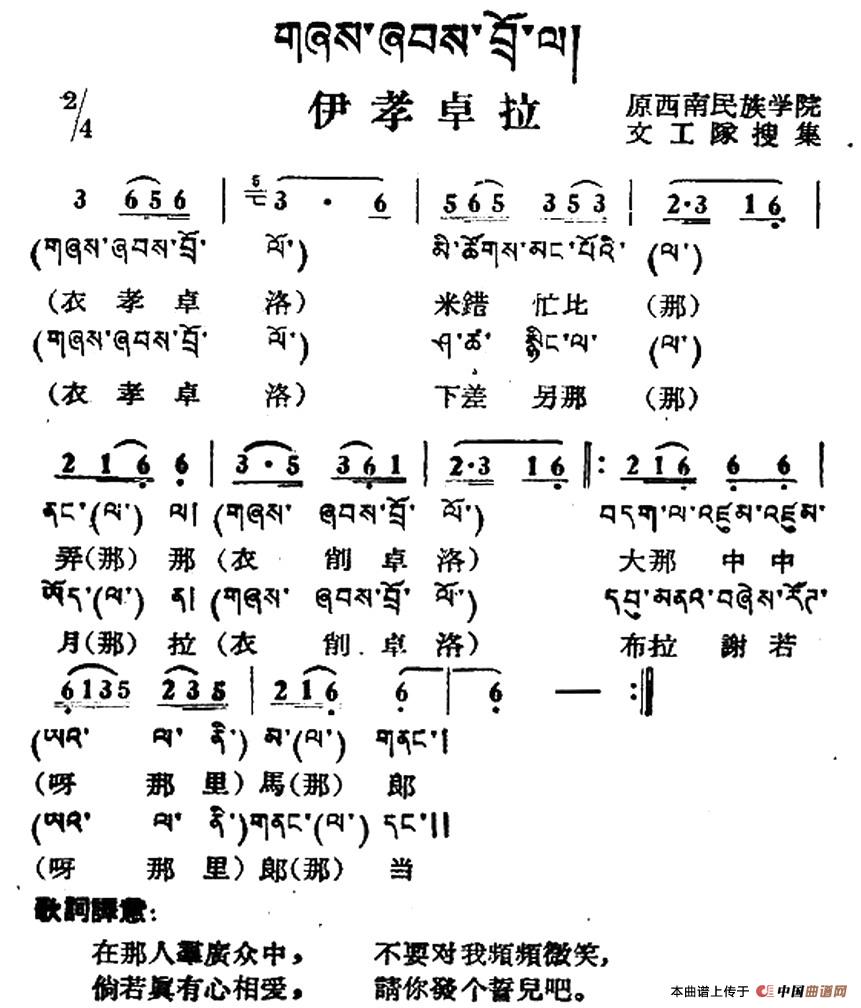 གཞས་ཞབས་བྲོ་ལ།
2/4
伊孝卓拉
原西南民族学院
文工隊搜集
3 6 5 6 | 5/七 3 · 6 | 5 6 5 3 5 3 | 2·3 1 6 |
(གཞས་ཞབས་བྲོ་ ལོ་) མི་ཚོགས་མང་པོའི་ (ལ་)
(衣孝卓 洛) 米錯 忙比 (那)
(གཞས་ཞབས་བྲོ་ ལོ་) ཤ་ཚ་ སྙིང་ལ་ (ལ་)
(衣孝卓 洛) 下差 另那 (那)
2 1 6 6 | 3·5 3 6 1 | 2·3 1 6 :: 2 1 6 6 6 |
ནང་(ལ་) ལ། (གཞས་ ཞབས་བྲོ་ ལོ་) བདག་ལ་འཛུམ་འཛུམ་
弄(那) 那 (衣 削卓 洛) 大那 中中
ཡོད་(ལ་) ན། (གཞས་ ཞབས་བྲོ་ ལོ་) དབུ་མནའ་བཞེས་རོཊ་
月(那) 拉 (衣 削卓 洛) 布拉 謝若
6 1 3 5 2 3 5 | 2 1 6 6 | 6 — :||
(ཡའ་ ལ་ ནི་) མ་(ལ་) གནང་།
(呀 那 里) 馬(那) 郎
(ཡའ་ ལ་ ནི་)གནང་(ལ་) དང་།།
(呀 那 里) 郎(那) 当
歌詞譯意:
在那人羣廣众中, 不要对我頻頻微笑,
倘若眞有心相爱, 請你發个誓兒吧。
本曲谱上传于 中国曲谱网